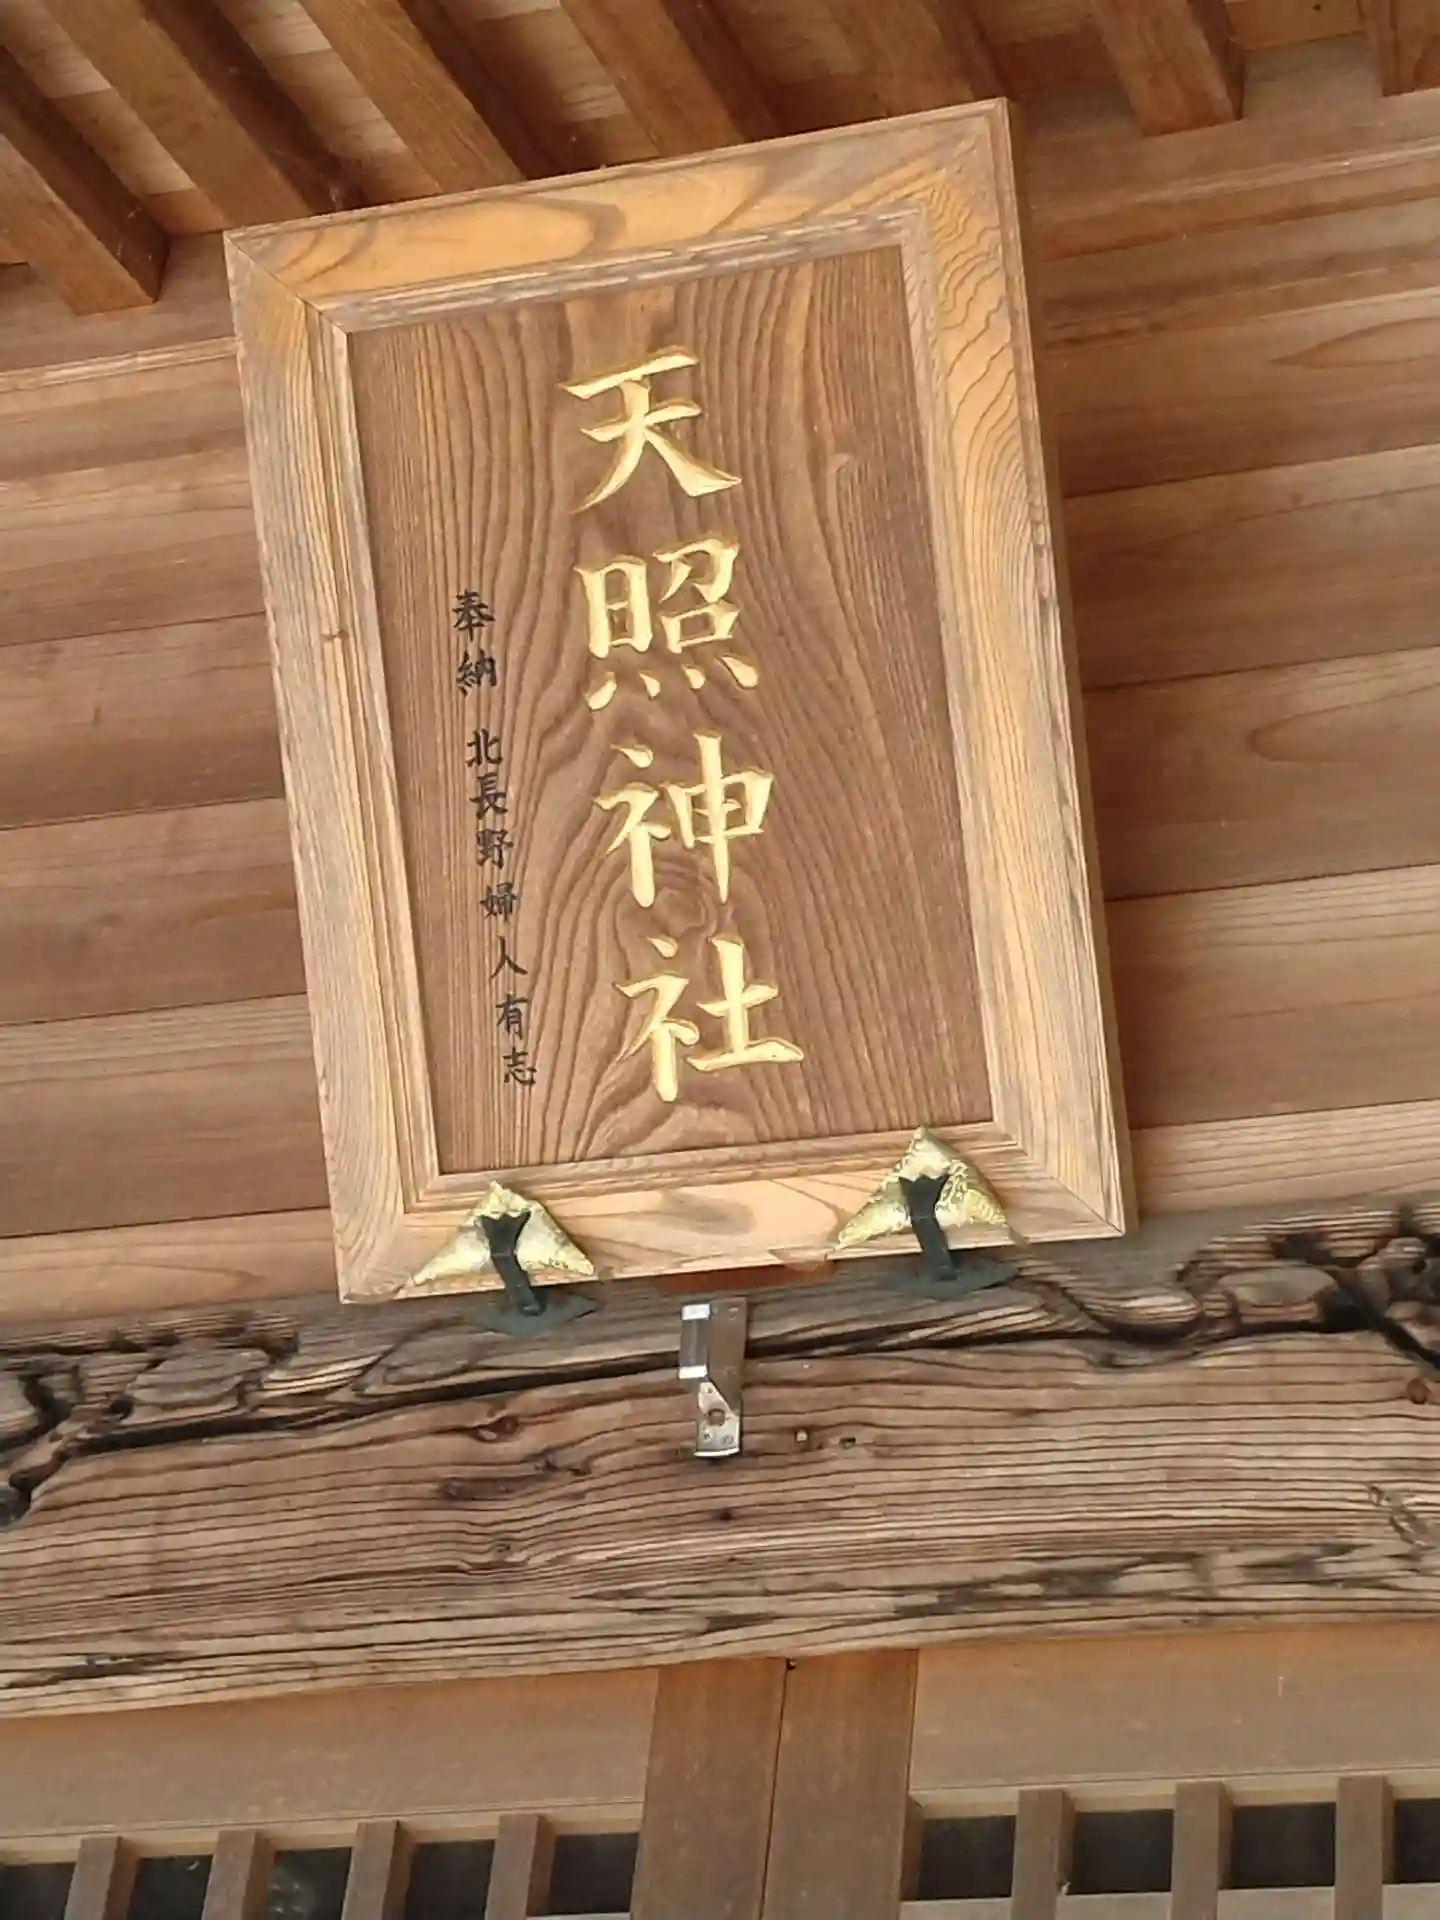 天照神社
奉納 北長野婦人有志